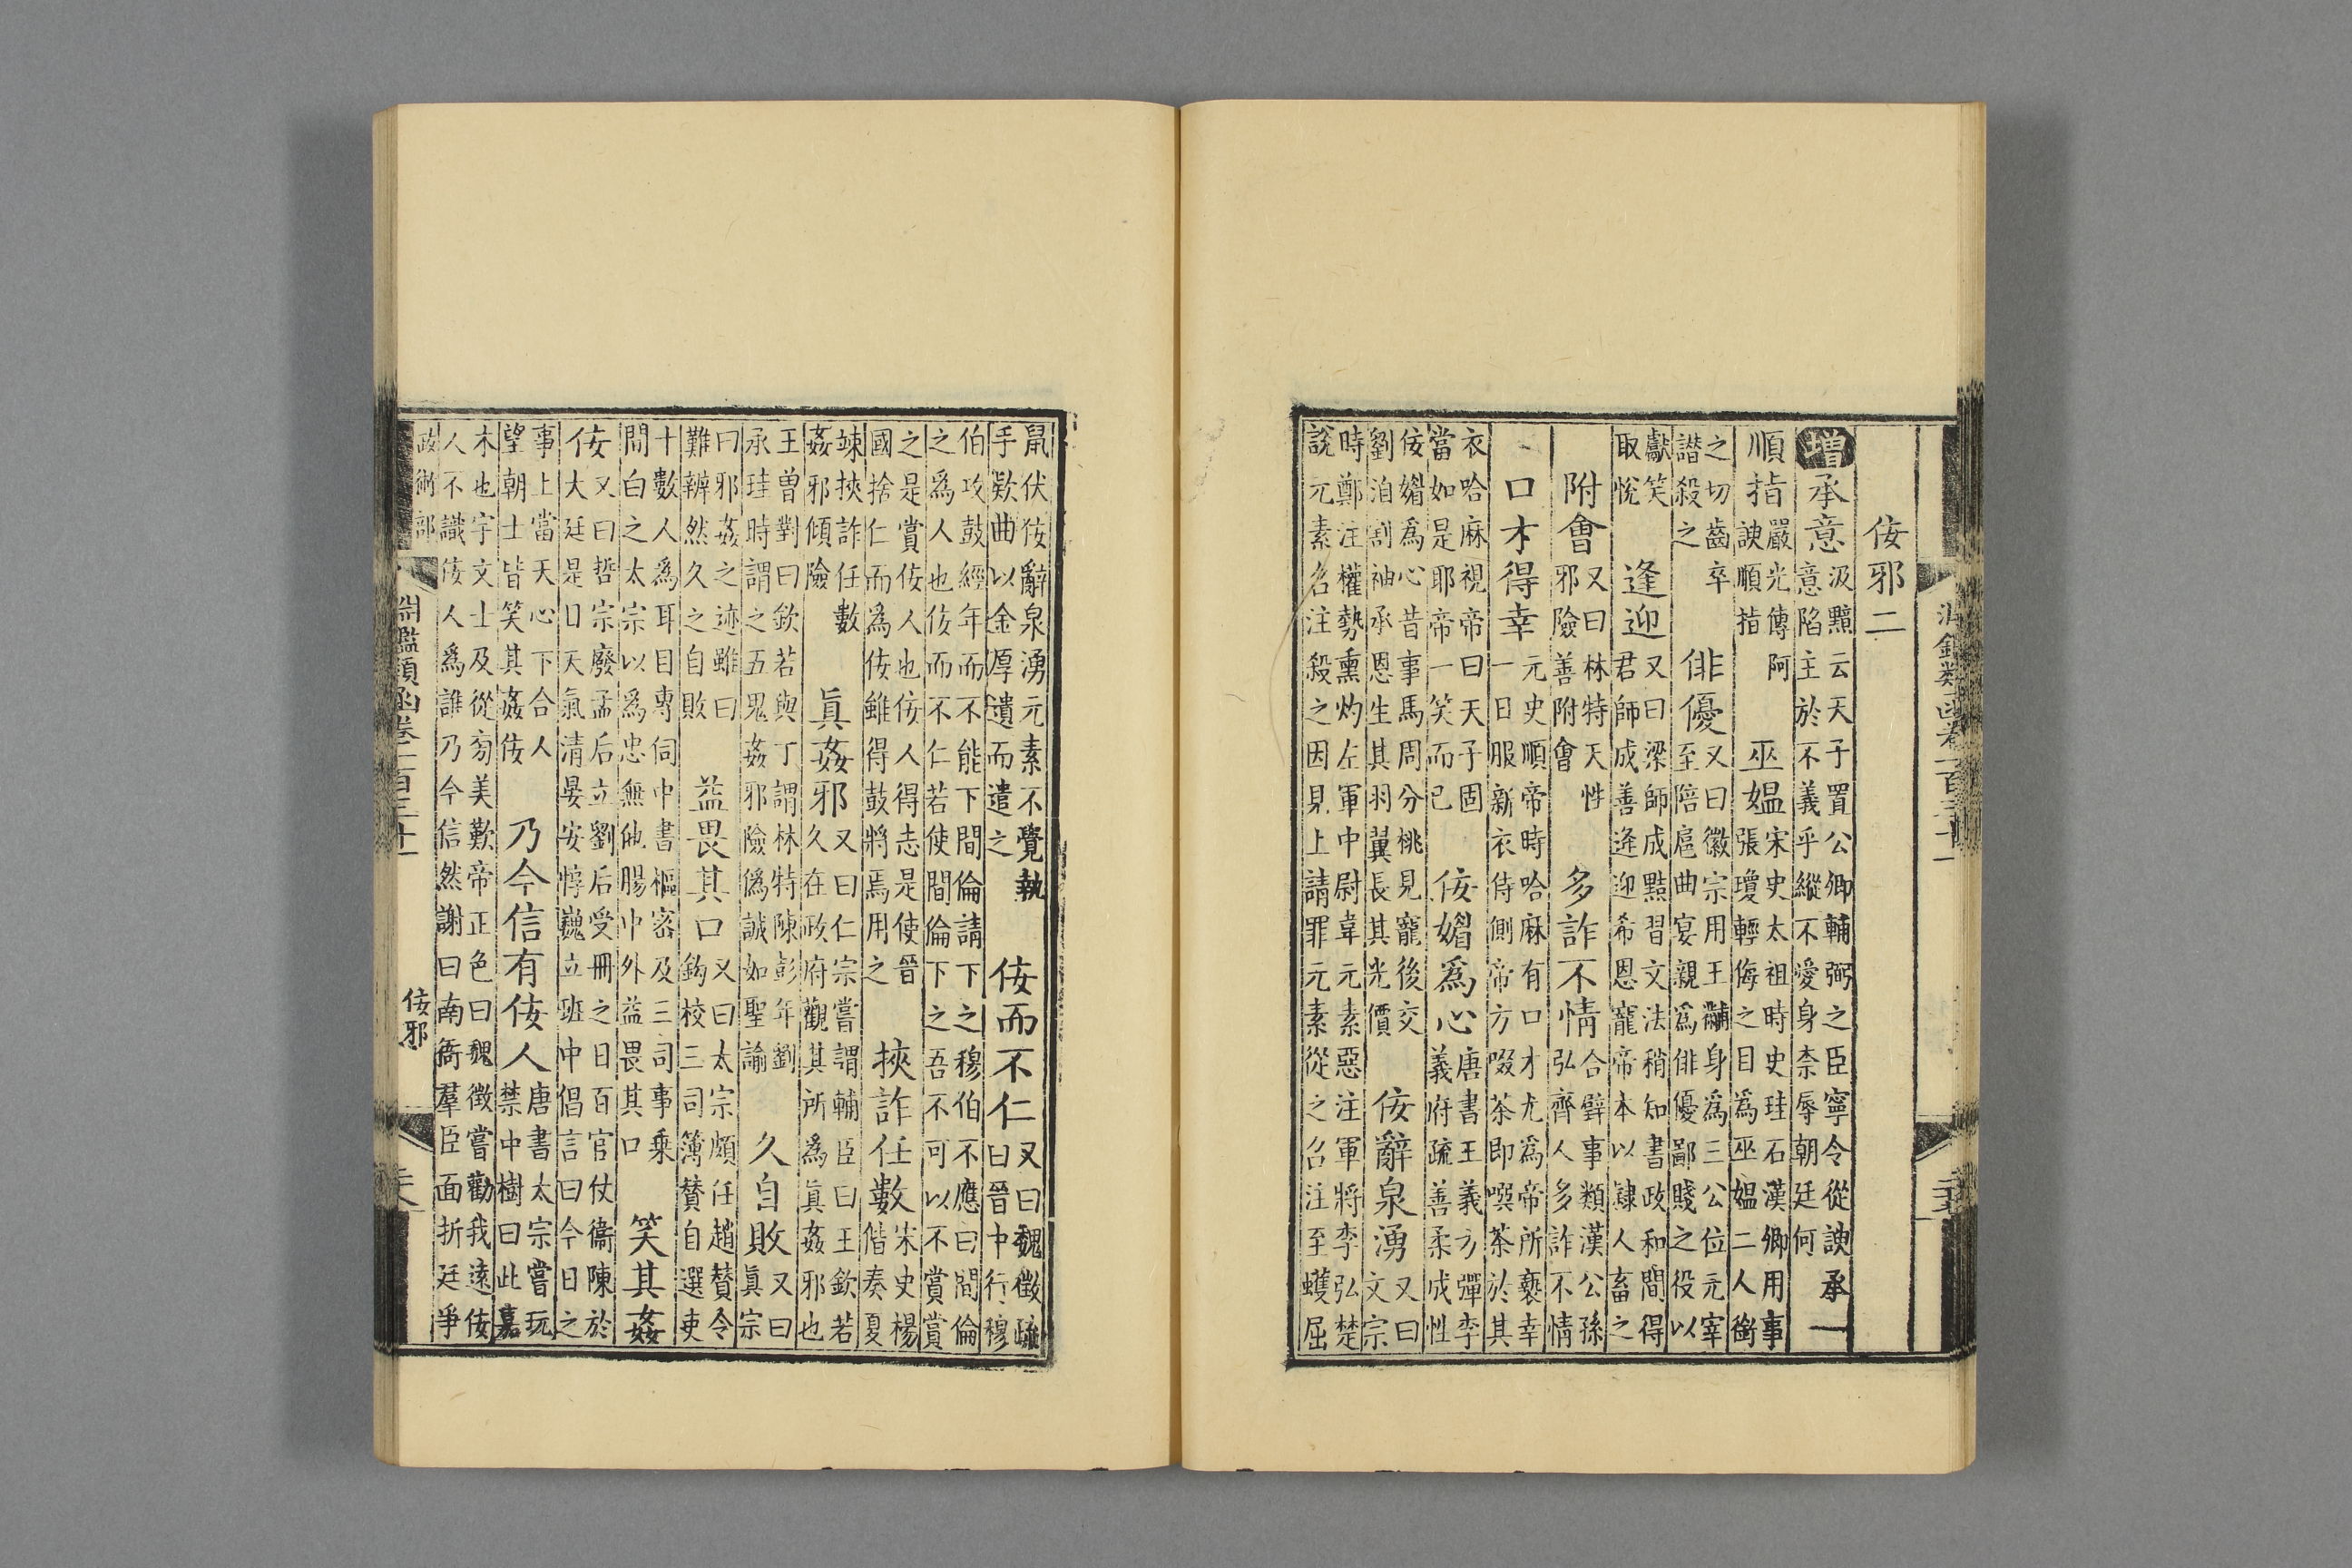 佞邪二
增承意汲黯云天子置公卿輔弼之臣寧令從諛承意陷主於不義乎縱不愛身柰辱朝廷何一
順指嚴光傳阿諛順指巫媼宋史太祖時史珪石漢卿用事張瓊輕侮之目爲巫媼二人銜
之切齒卒譖殺之俳優又曰徽宗用王黼身爲三公位元宰至陪扈曲宴親爲俳優鄙賤之役以
獻笑取悅逢迎又曰梁師成黠習文法稍知書政和間得君師成善逢迎希恩寵帝本以隸人畜之
附會又曰林特天性邪險善附會多詐不情合璧事類漢公孫弘齊人多詐不情
口才得幸元史順帝時哈麻有口才尤爲帝所褻幸一日服新衣侍側帝方啜茶即噀茶於其
衣哈麻視帝曰天子固當如是耶帝一笑而已佞媚爲心唐書王義方彈李義府疏善柔成性
佞媚爲心昔事馬周分桃見寵後交劉洎割袖承恩生其羽翼長其光價佞辭泉湧又曰文宗
時鄭注權勢熏灼左軍中尉韋元素惡注軍將李弘楚說元素召注殺之因見上請罪元素從之召注至蠖屈
鼠伏佞辭泉湧元素不覺執手欵曲以金厚遺而遣之佞而不仁又曰魏徵疏曰晉中行穆
伯攻鼓經年而不能下間倫請下之穆伯不應曰間倫之爲人也佞而不仁若使間倫下之吾不可以不賞賞
之是賞佞人也佞人得志是使晉國捨仁而爲佞雖得鼓將焉用之挾詐任數宋史楊偕奏夏
竦挾詐任數姦邪傾險眞姦邪又曰仁宗嘗謂輔臣曰王欽若久在政府觀其所爲眞姦邪也
王曾對曰欽若與丁謂林特陳彭年劉承珪時謂之五鬼姦邪險僞誠如聖諭久自敗又曰眞宗
曰邪姦之迹雖曰難辨然久之自敗益畏其口又曰太宗頗任趙贊令鈎校三司簿贊自選吏
十數人爲耳目專伺中書樞密及三司事乘間白之太宗以爲忠無他腸中外益畏其口笑其姦
佞又曰哲宗廢孟后立劉后受冊之日百官仗衞陳於大廷是日天氣清晏安惇巍立班中倡言曰今日之
事上當天心下合人望朝士皆笑其姦佞乃今信有佞人唐書太宗嘗玩禁中樹曰此嘉
木也宇文士及從旁美歎帝正色曰魏徵嘗勸我遠佞人不識佞人爲誰乃今信然謝曰南衙羣臣面折廷爭
政術部 淵鑑類函卷二百三十一 佞邪